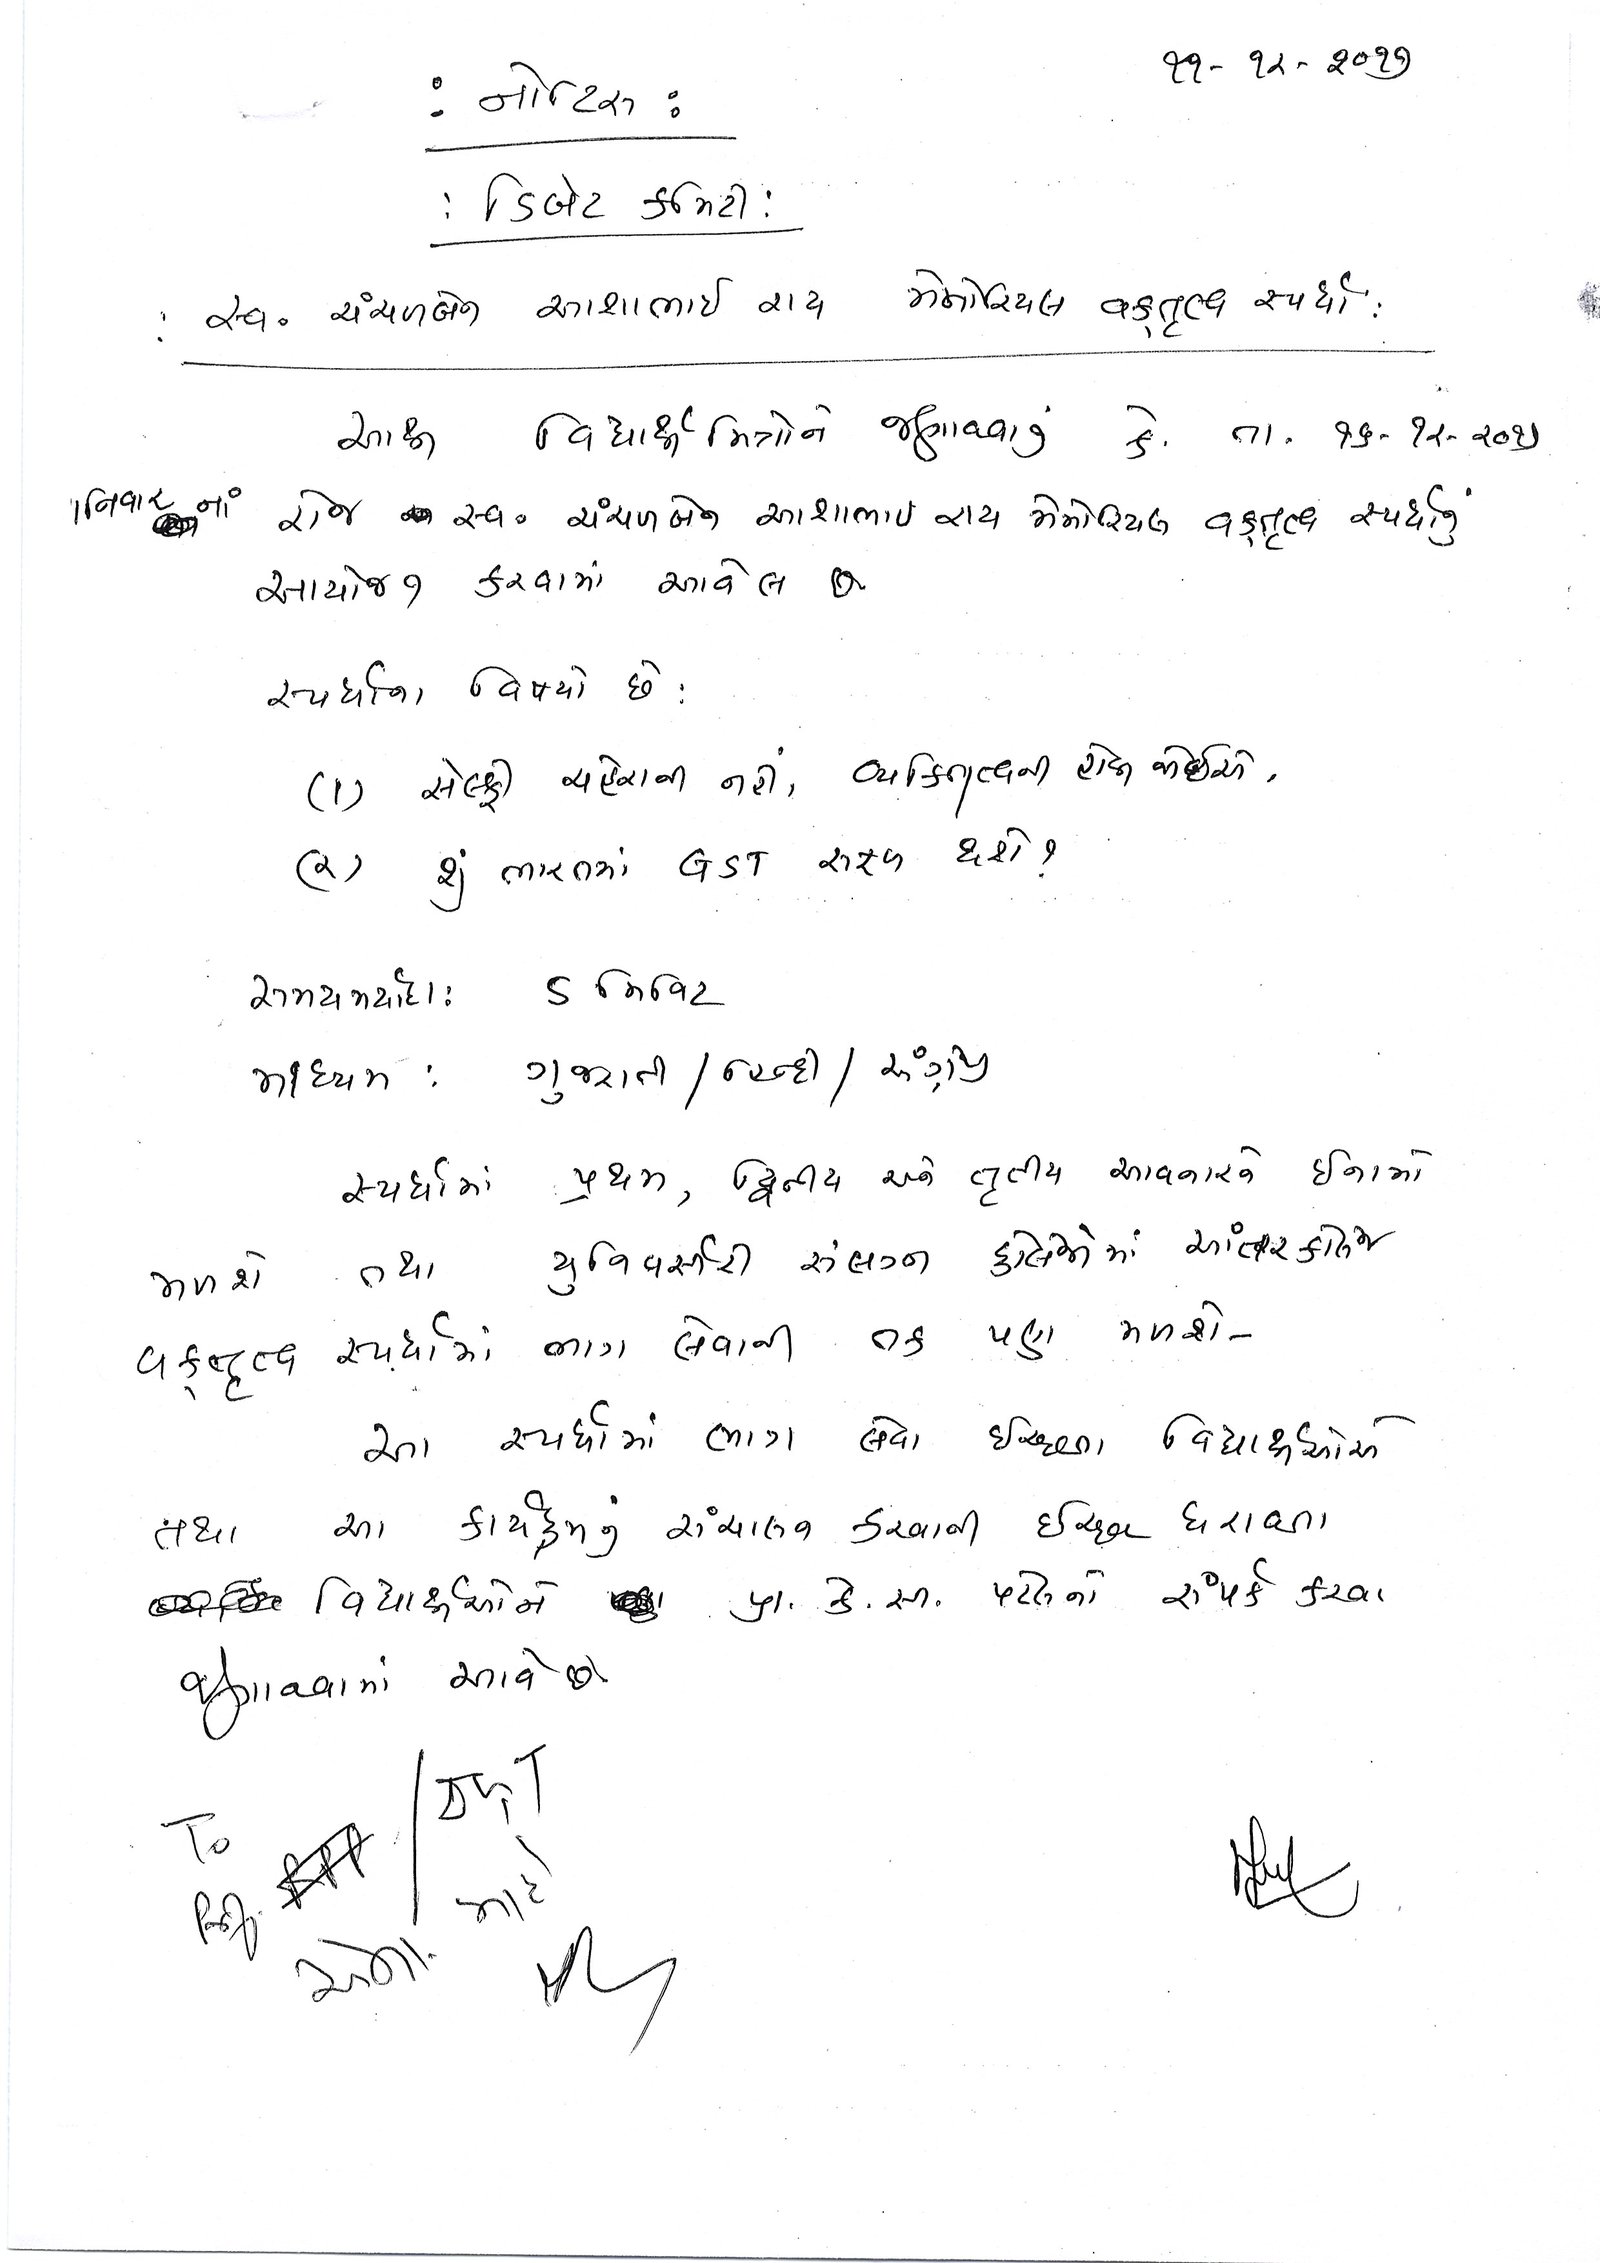 ૧૧- ૧૨- ૨૦૧૭
: નોટિસ :
: ડિબેટ કમિટી :
: સ્વ. ચંચળબેન આશાભાઈ રાય મેમોરિયલ વક્તૃત્વ સ્પર્ધા :
આથી વિદ્યાર્થીમિત્રોને જણાવવાનું કે. તા. ૧૬- ૧૨- ૨૦૧૭
શનિવાર નાં રોજ સ્વ. ચંચળબેન આશાભાઈ રાય મેમોરિયલ વક્તૃત્વ સ્પર્ધાનું
આયોજન કરવામાં આવેલ છે
સ્પર્ધાના વિષયો છે :
(1) સેલ્ફી ચહેરાની નહીં, વ્યક્તિત્વની હોવી જોઈએ.
(૨) શું ભારતમાં GST સફળ થશે ?
સમયમર્યાદા : 5 મિનિટ
માધ્યમ : ગુજરાતી / હિન્દી / અંગ્રેજી
સ્પર્ધામાં પ્રથમ, દ્વિતીય અને તૃતીય આવનારને ઈનામો
મળશે તથા યુનિવર્સીટી સંલગ્ન કૉલેજોમાં આંતરકૉલેજ
વક્તૃત્વ સ્પર્ધામાં ભાગ લેવાની તક પણ મળશે-
આ સ્પર્ધામાં ભાગ લેવા ઈચ્છતા વિદ્યાર્થીઓએ
તથા આ કાર્યક્રમનું સંચાલન કરવાની ઈચ્છા ધરાવતા
વિદ્યાર્થીઓને પ્રા. કે. સી. પટેલનો સંપર્ક કરવા
જણાવવામાં આવે છે
To
Prof.
માટે